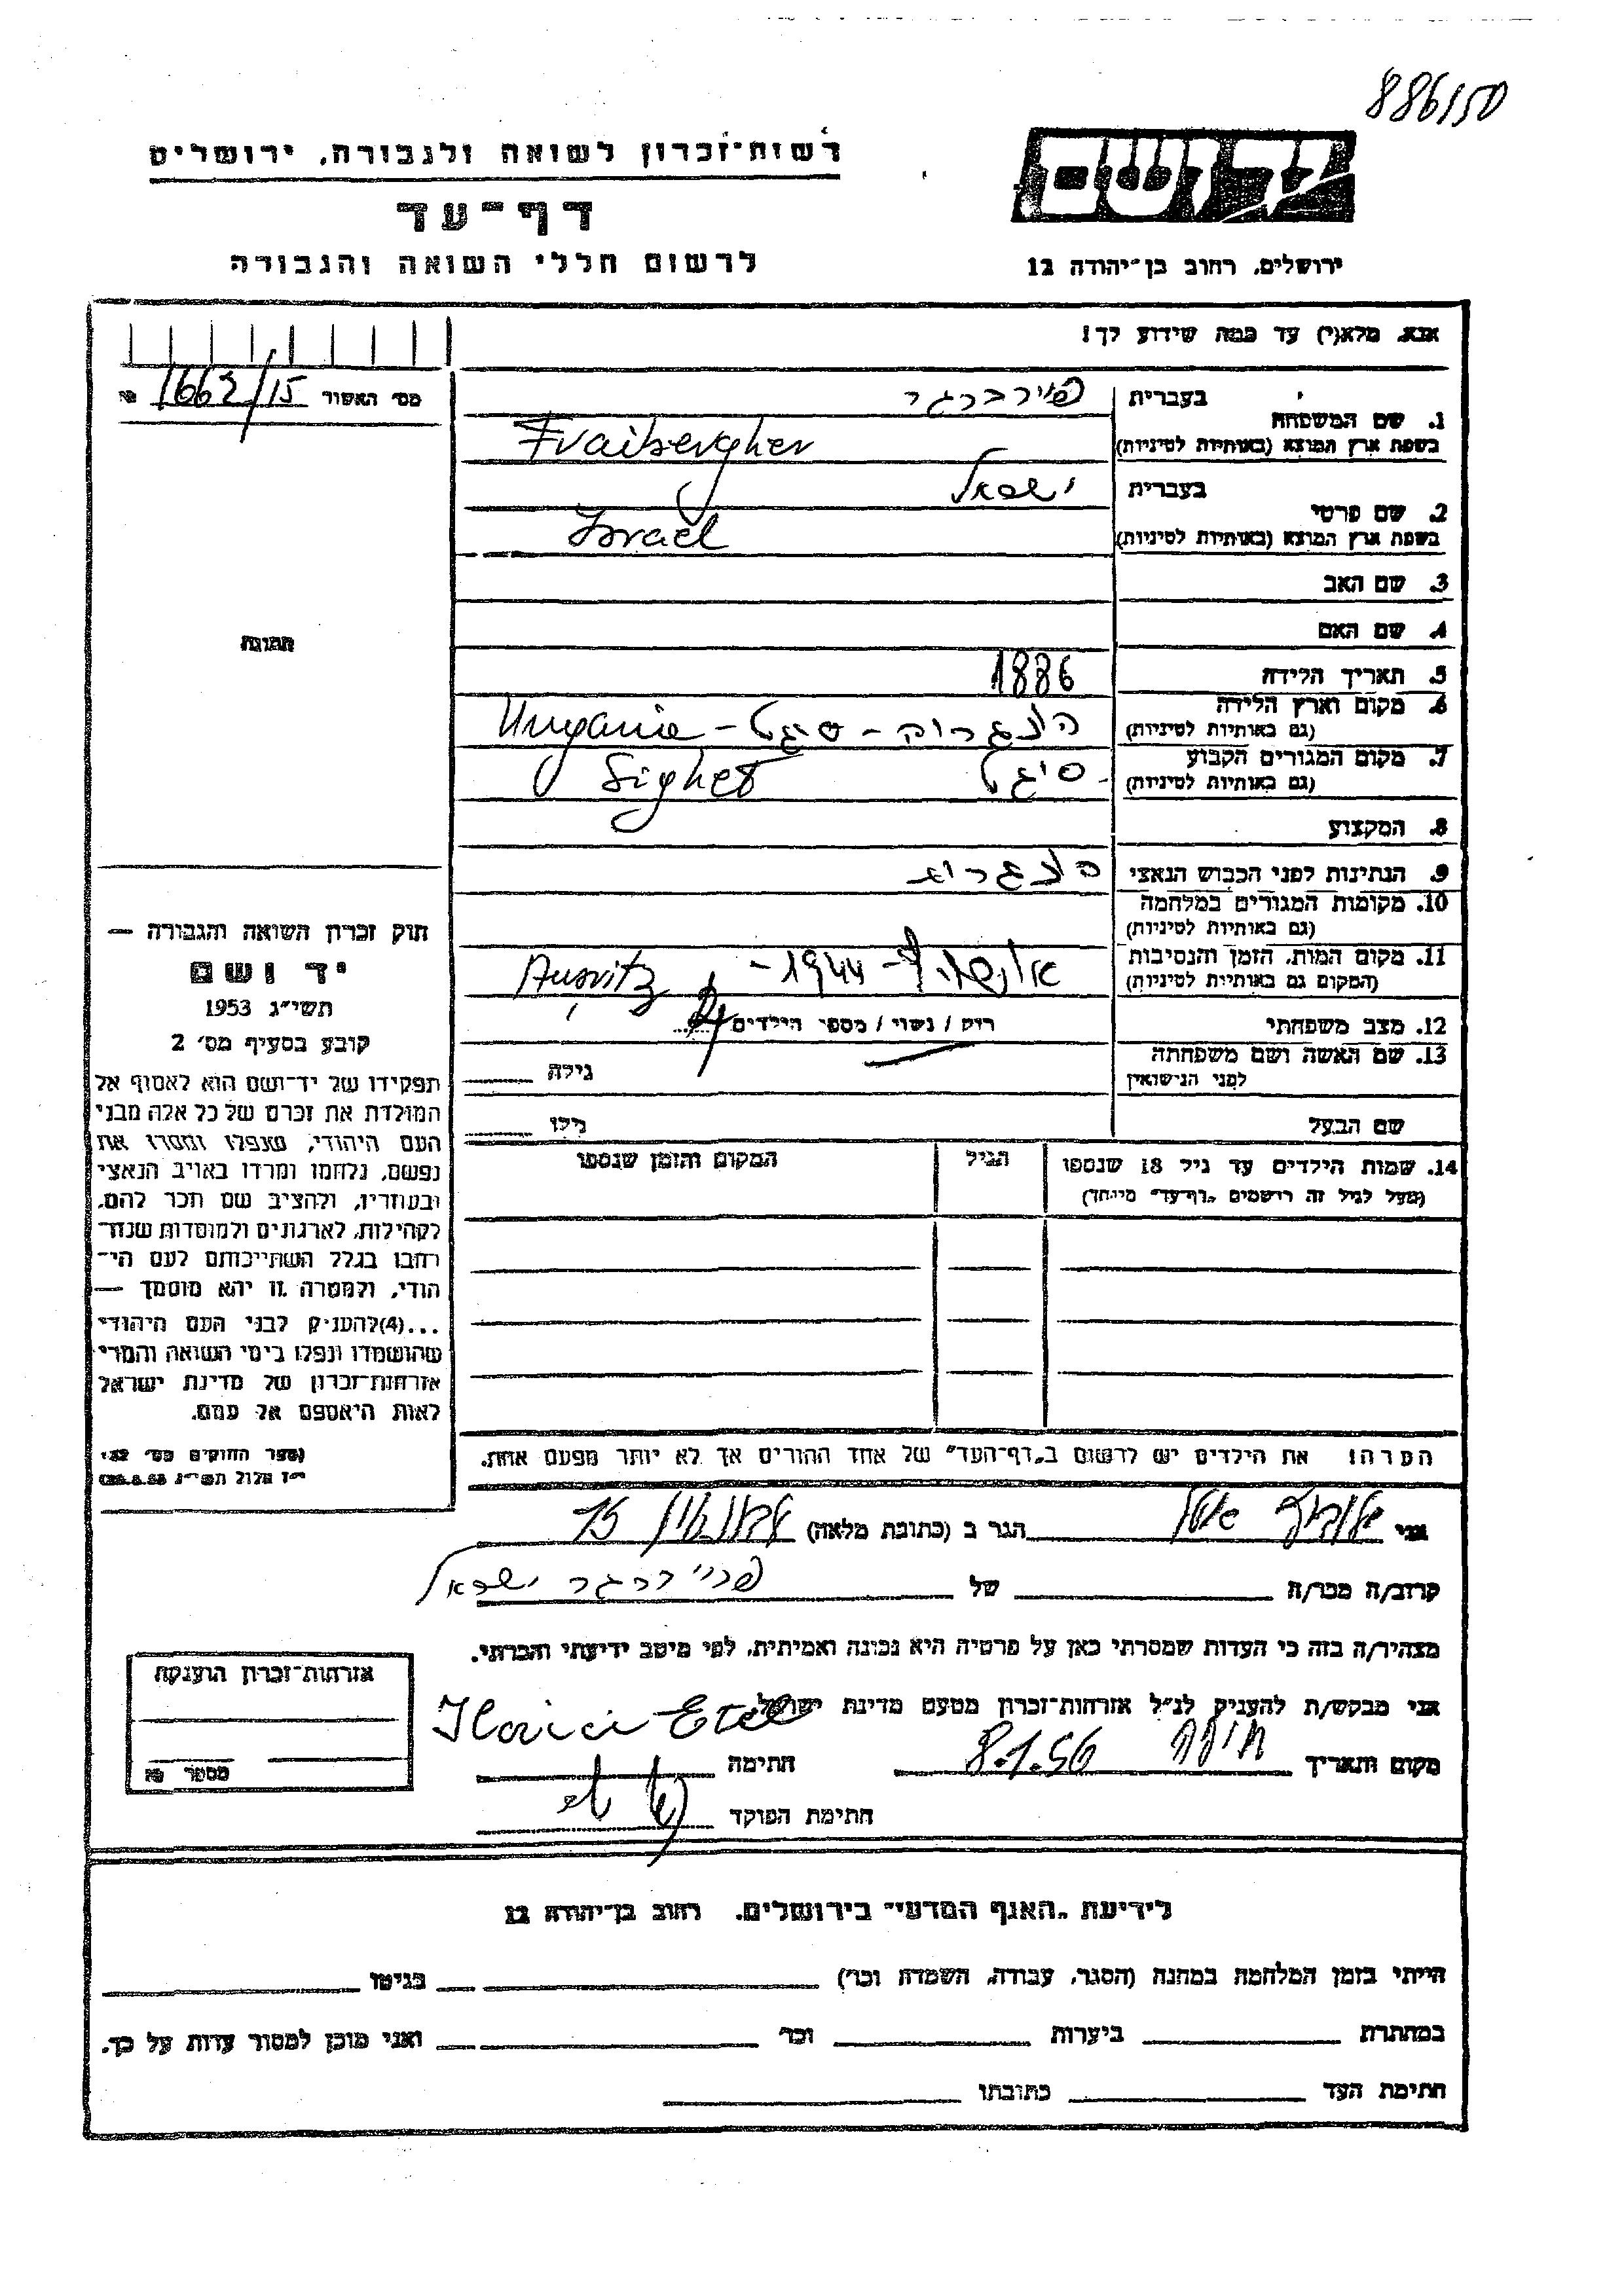 886/50
רשות-זכרון לשואה ולגבורה, ירושלים
דף-עד
לרשום חללי השואה והגבורה
יד ושם
ירושלים, רחוב בן-יהודה 12
אנא, מלא(י) עד כמה שידוע לך!
מס׳ האשור 1663/15 №
1. שם המשפחה
בעברית פריברגר
בשפת ארץ המוצא (באותיות לטיניות) Fraibergher
2. שם פרטי
בעברית ישראל
בשפת ארץ המוצא (באותיות לטיניות) Israel
3. שם האב
4. שם האם
תמונה
5. תאריך הלידה 1886
6. מקום וארץ הלידה הונגריה - סיגט - Ungarie
(גם באותיות לטיניות)
7. מקום המגורים הקבוע סיגט Sighet
(גם באותיות לטיניות)
8. המקצוע
9. הנתינות לפני הכבוש הנאצי הונגרית
10. מקומות המגורים במלחמה
(גם באותיות לטיניות)
11. מקום המות, הזמן והנסיבות - 1944 - Ausvitz
(המקום גם באותיות לטיניות)
12. מצב משפחתי רוק / נשוי / מספר הילדים
13. שם האשה ושם משפחתה
לפני הנישואין גילה
שם הבעל גילו
14. שמות הילדים עד גיל 18 שנספו הגיל המקום והזמן שנספו
(מעל לגיל זה רושמים "דף-עד" מיוחד)
הערה: את הילדים יש לרשום ב"דף-העד" של אחד ההורים אך לא יותר מפעם אחת.
חוק זכרון השואה והגבורה —
יד ושם
תשי"ג 1953
קובע בסעיף מס׳ 2
תפקידו של יד-ושם הוא לאסוף אל
המולדת את זכרם של כל אלה מבני
העם היהודי, שנפלו ומסרו את
נפשם, נלחמו ומרדו באויב הנאצי
ובעוזריו, ולהציב שם וזכר להם,
לקהילות, לארגונים ולמוסדות שנח-
רבו בגלל השתייכותם לעם הי-
הודי, ולמטרה זו יהא מוסמך —
...(4) להעניק לבני העם היהודי
שהושמדו ונפלו בימי השואה והמרי
אזרחות-זכרון של מדינת ישראל
לאות היאספם אל עמם.
(ספר החוקים מס׳ 132,
אני הגר ב (כתובת מלאה) 15
קרוב/ה מכר/ה של פרייברגר ישראל
מצהיר/ה בזה כי העדות שמסרתי כאן על פרטיה היא נכונה ואמיתית, לפי מיטב ידיעתי והכרתי.
אני מבקש/ת להעניק לנ"ל אזרחות-זכרון מטעם מדינת ישראל
מקום ותאריך חיפה 8.1.56 חתימה Ilovici Etel
חתימת הפוקד
אזרחות-זכרון הוענקה
מספר №
לידיעת "האגף המדעי" בירושלים, רחוב בן-יהודה 12
הייתי בזמן המלחמה במחנה (הסגר, עבודה, השמדה וכו׳) בגיטו
במחתרת ביערות וכו׳ ואני מוכן למסור עדות על כך.
חתימת העד כתובתו